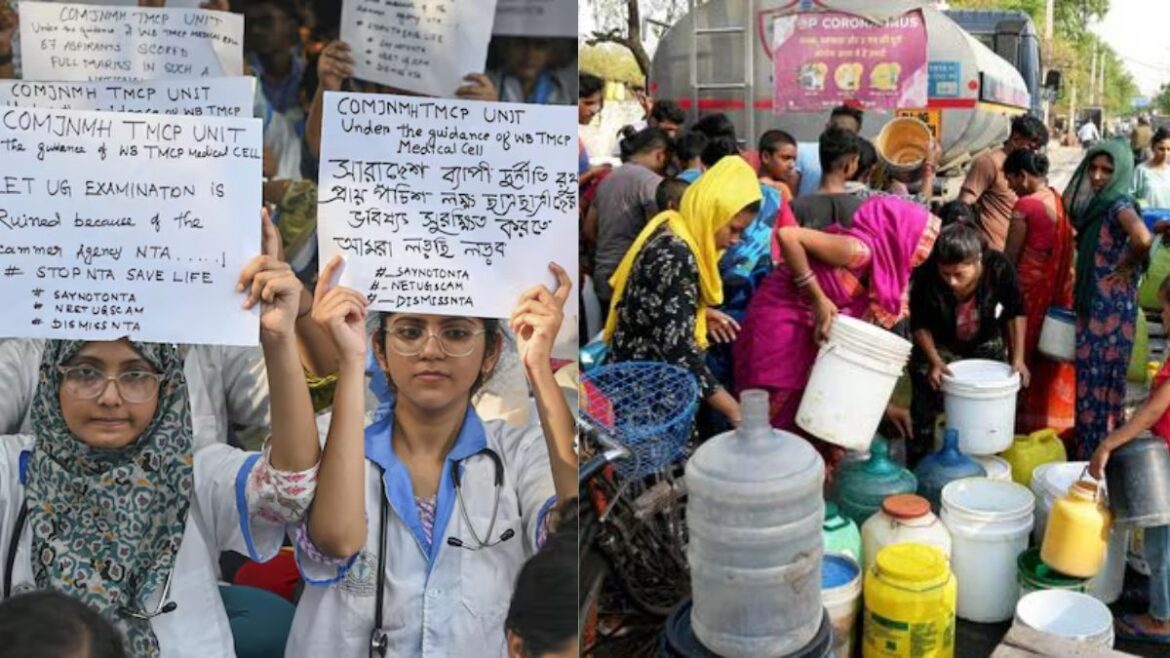 COMJNMH TMCP UNIT
Under the guidance of WB TMCP Medical Cell
67 ASPIRANTS SCORED
FULL MARKS IN SUCH A
COMJNMH TMCP UNIT
COMJNMH TMCP UNIT
the guidance of WB TMCP Medical CELL
UG EXAMINATION IS
Ruined because of the
Agency NTA.....!
# STOP NTA SAVE LIFE
# SAYNOTONTA
# NEETUGSCAM
# DISMISSNTA
COMJNMH TMCP UNIT
Under the guidance of WB TMCP
Medical Cell
ব্যাপী দুর্নীতি রুখে
প্রায় পঁচিশ লক্ষ ছাত্রছাত্রীদের
ভবিষ্যৎ সুরক্ষিত করতে
আমরা লড়ছি লড়ব
#_SAYNOTONTA
#_NETUGSCAM
#_DISMISSNTA
CORONAVIRUS